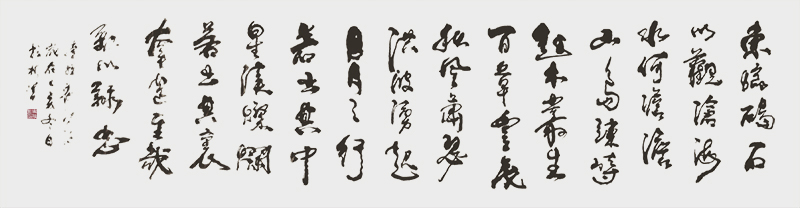 東臨碣石
以觀滄海
水何澹澹
山島竦峙
樹木叢生
百草豐茂
秋風蕭瑟
洪波湧起
日月之行
若出其中
星漢燦爛
若出其裏
幸甚至哉
歌以詠志
歲在己亥冬日